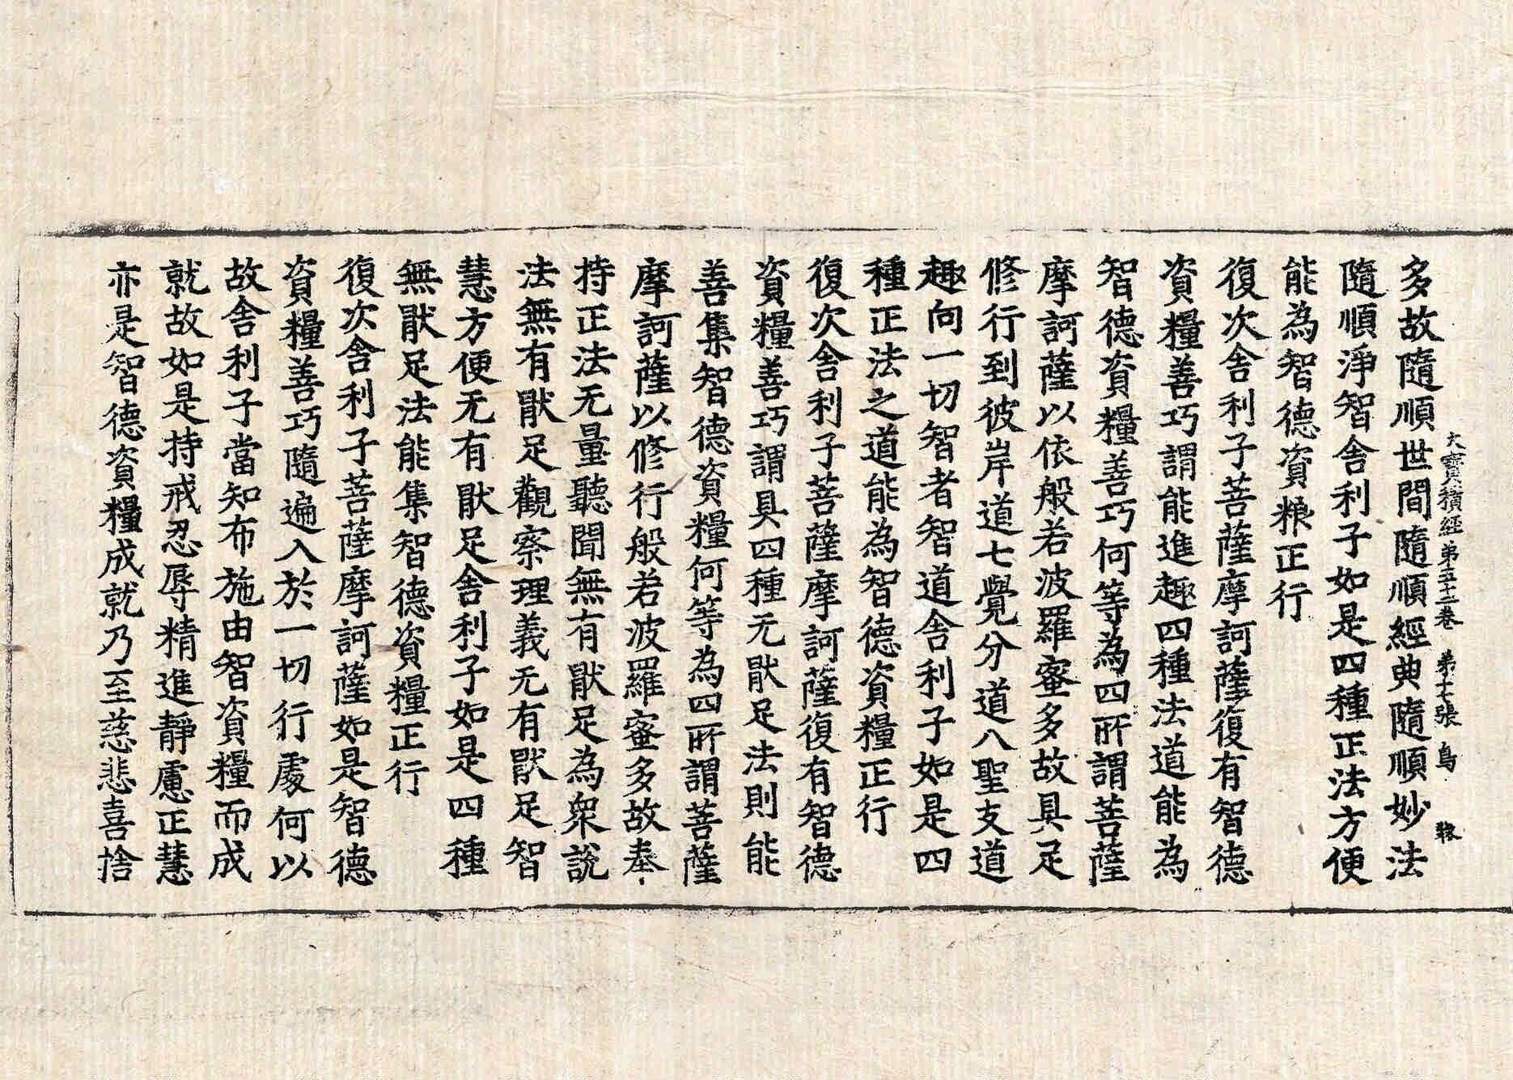 大寶積經第五十二卷　第十七張　鳥
多故隨順世間隨順經典隨順妙法
隨順淨智舍利子如是四種正法方便
能為智德資粮正行
復次舍利子菩薩摩訶薩復有智德
資糧善巧謂能進趣四種法道能為
智德資糧善巧何等為四所謂菩薩
摩訶薩以依般若波羅蜜多故具足
修行到彼岸道七覺分道八聖支道
趣向一切智者智道舍利子如是四
種正法之道能為智德資糧正行
復次舍利子菩薩摩訶薩復有智德
資糧善巧謂具四種无猒足法則能
善集智德資糧何等為四所謂菩薩
摩訶薩以修行般若波羅蜜多故奉
持正法无量聽聞無有猒足為眾說
法無有猒足觀察理義无有猒足智
慧方便无有猒足舍利子如是四種
無猒足法能集智德資糧正行
復次舍利子菩薩摩訶薩如是智德
資糧善巧隨遍入於一切行處何以
故舍利子當知布施由智資糧而成
就故如是持戒忍辱精進靜慮正慧
亦是智德資糧成就乃至慈悲喜捨